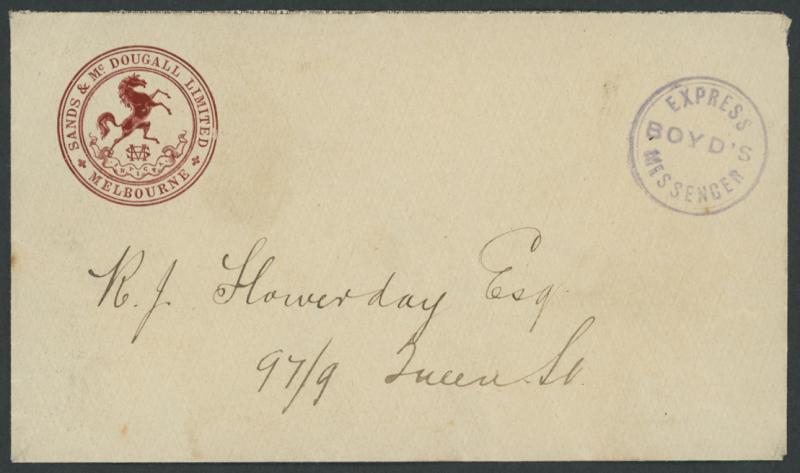 SANDS & Mc DOUGALL LIMITED
MELBOURNE
EXPRESS
BOYD'S
MESSENGER
R. J. Flowerday Esq.
97/9 Queen St.